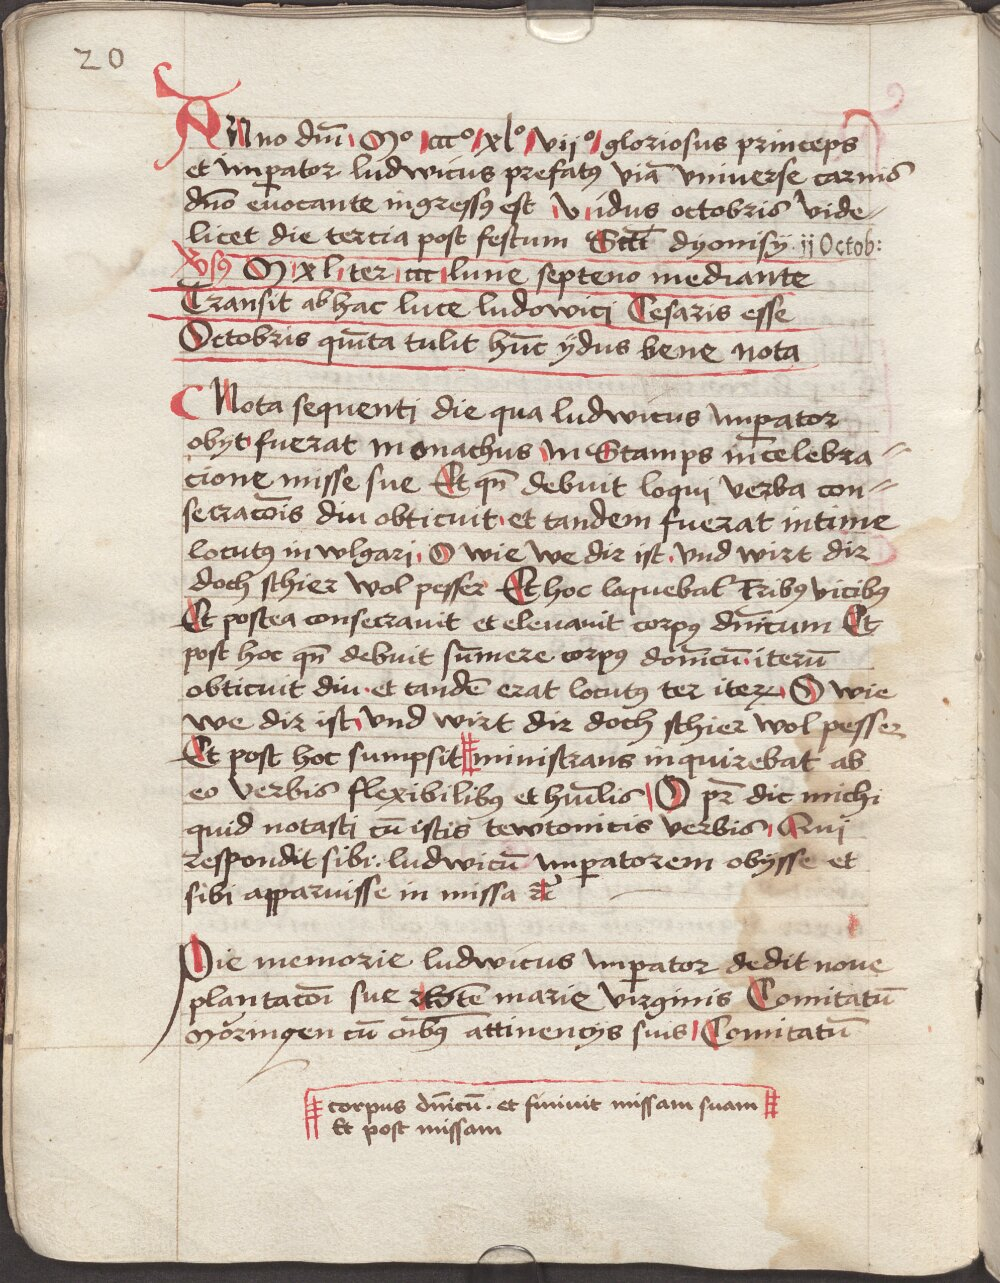 20
Anno dn̄i Mº cccº xlº vijº gloriosus princeps
et imperator ludwicus prefatꝰ viā vniverse carnis
dn̄o evocante ingressꝰ est v idus octobris vide
licet die tercia post festum Sct̄i dyonisy ij Octob:
v̄sꝰ M xl ter ccc lune septeno mediante
Transit ab hac luce ludowici Cesaris esse
Octobris quīta tulit hūc ydus bene nota
Nota sequenti die qua ludwicus imperator
obyt fuerat monachus in Stamps in celebra
cione misse sue Et qn̄ debuit loqui verba con
secracōis diu obticuit et tandem fuerat intime
locutꝰ in wlgari O wie we dir ist vnd wirt dir
doch schier wol pesser Et hoc loquebat̄ tribꝰ vicibꝰ
Et postea consecravit et elevavit corpꝰ dn̄icum Et
post hoc qn̄ debuit sūmere corpꝰ domīcū iterū
obticuit diu et tandē erat locutꝰ ter iteꝝ O wie
we dir ist vnd wirt dir doch schier wol pesser
Et post hoc sumpsit ministrans inquirebat ab
eo verbis flexibilibꝰ et hūilis O pr̄ dic michi
quid notasti cū istis tewtonicis verbis Qui
respondit sibi ludwicū imperatorem obysse et
sibi apparuisse in missa ⁊c̄
Pie memorie ludwicus imperator dedit nove
plantacōi sue marie virginis Comitatū
Möringen cū oībꝰ attinencys suis Comitatū
corpus dn̄icū et finivit missam suam
Et post missam